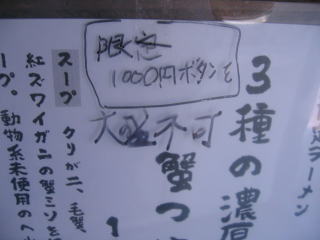 限定
1000円ボタンを
大盛不可
足ラーメン
3種の濃厚
蟹つ
1
スープ クリガニ、毛蟹、
紅ズワイガニの蟹ミソを
ープ。動物系未使用のヘ